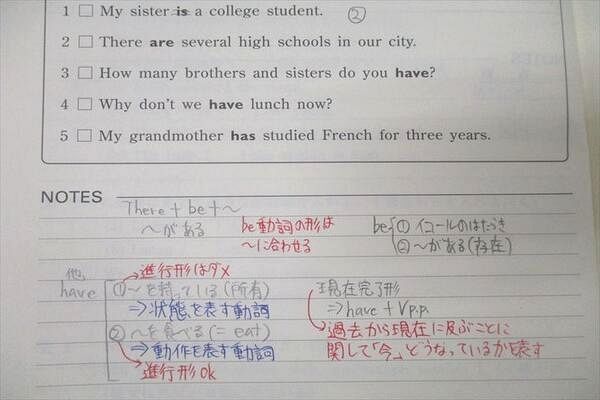 1 □ My sister is a college student. ②
2 □ There are several high schools in our city.
3 □ How many brothers and sisters do you have?
4 □ Why don't we have lunch now?
5 □ My grandmother has studied French for three years.
NOTES
There + be + 〜
〜がある
be動詞の形は
〜に合わせる
be ① イコールのはたらき
② 〜がある(存在)
他、
have
→進行形はダメ
① 〜を持っている(所有)
⇒状態を表す動詞
② 〜を食べる(= eat)
⇒動作を表す動詞
進行形ok
現在完了形
⇒ have + Vp.p.
→過去から現在に及ぶことに
関して「今」どうなっているか表す